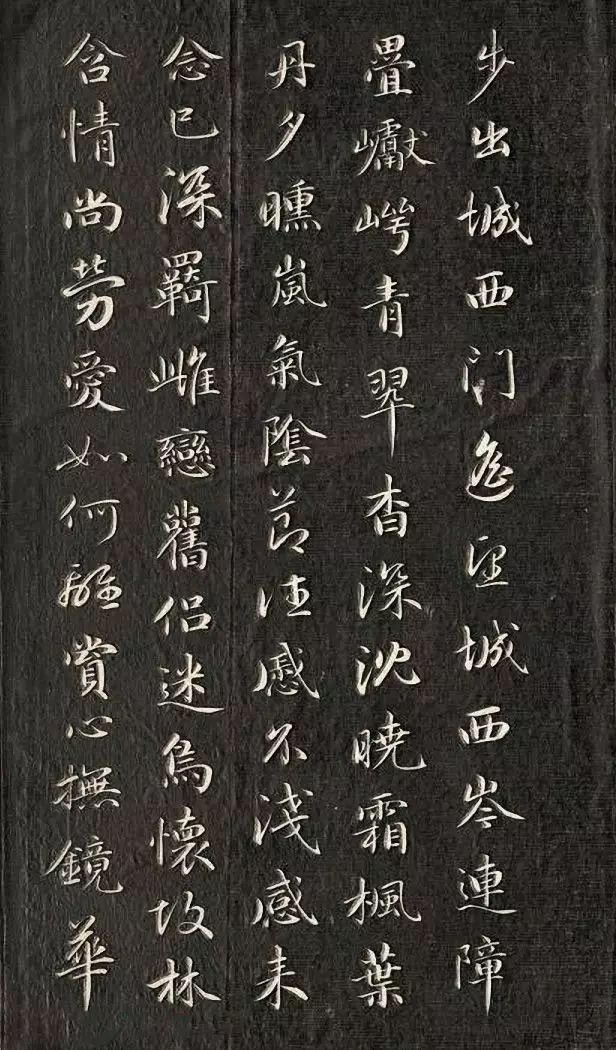 步出城西门遙望城西岑連障
疊巘崿青翠杳深沈曉霜楓葉
丹夕曛嵐氣陰節往慼不淺感来
念已深羈雌戀舊侶迷鳥懷故林
含情尚勞愛如何離賞心撫鏡華